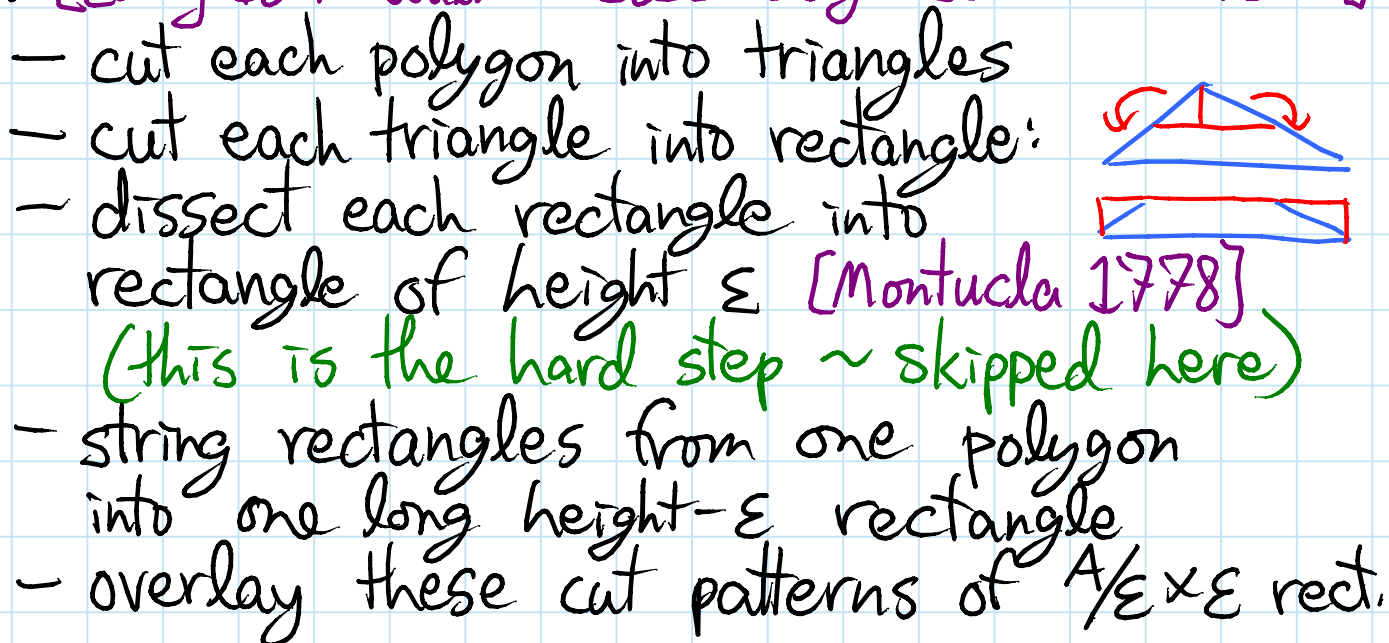 – cut each polygon into triangles
– cut each triangle into rectangle:
– dissect each rectangle into
rectangle of height ε [Montucla 1778]
(this is the hard step ~ skipped here)
– string rectangles from one polygon
into one long height-ε rectangle
– overlay these cut patterns of A/ε×ε rect.